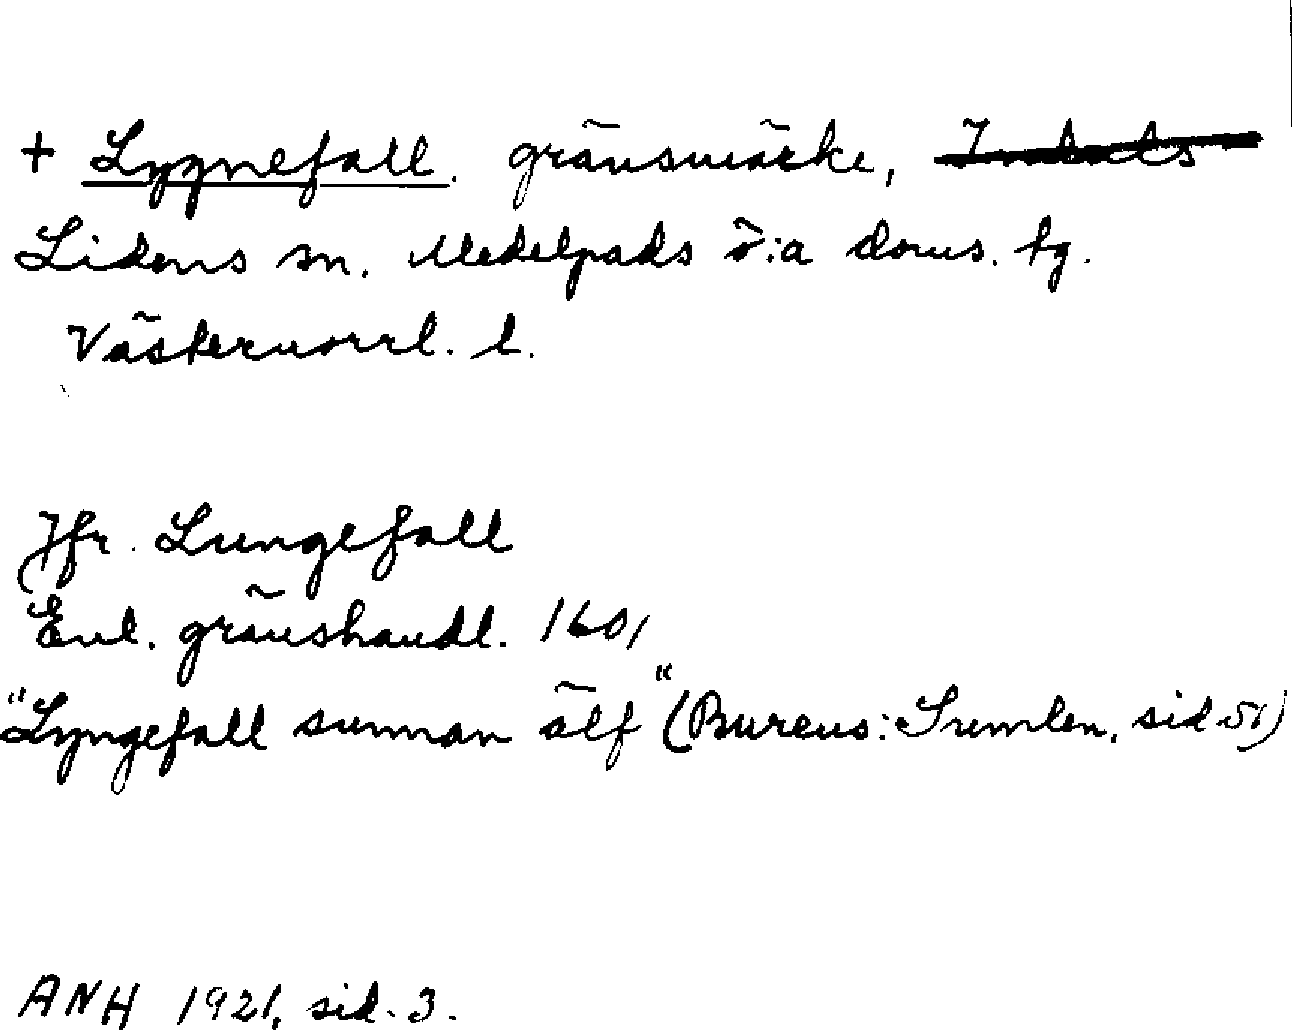 + Lygnefall. gränsmärke, Indals
Lidens sn. Medelpads ö:a doms. tg.
Västernorrl. l.
Jfr. Lungefall
Enl. gränshandl. 1601
"Lyngefall sunnan älf" (Bureus: Sumlen, sid 51)
ANH 1921, sid. 3.